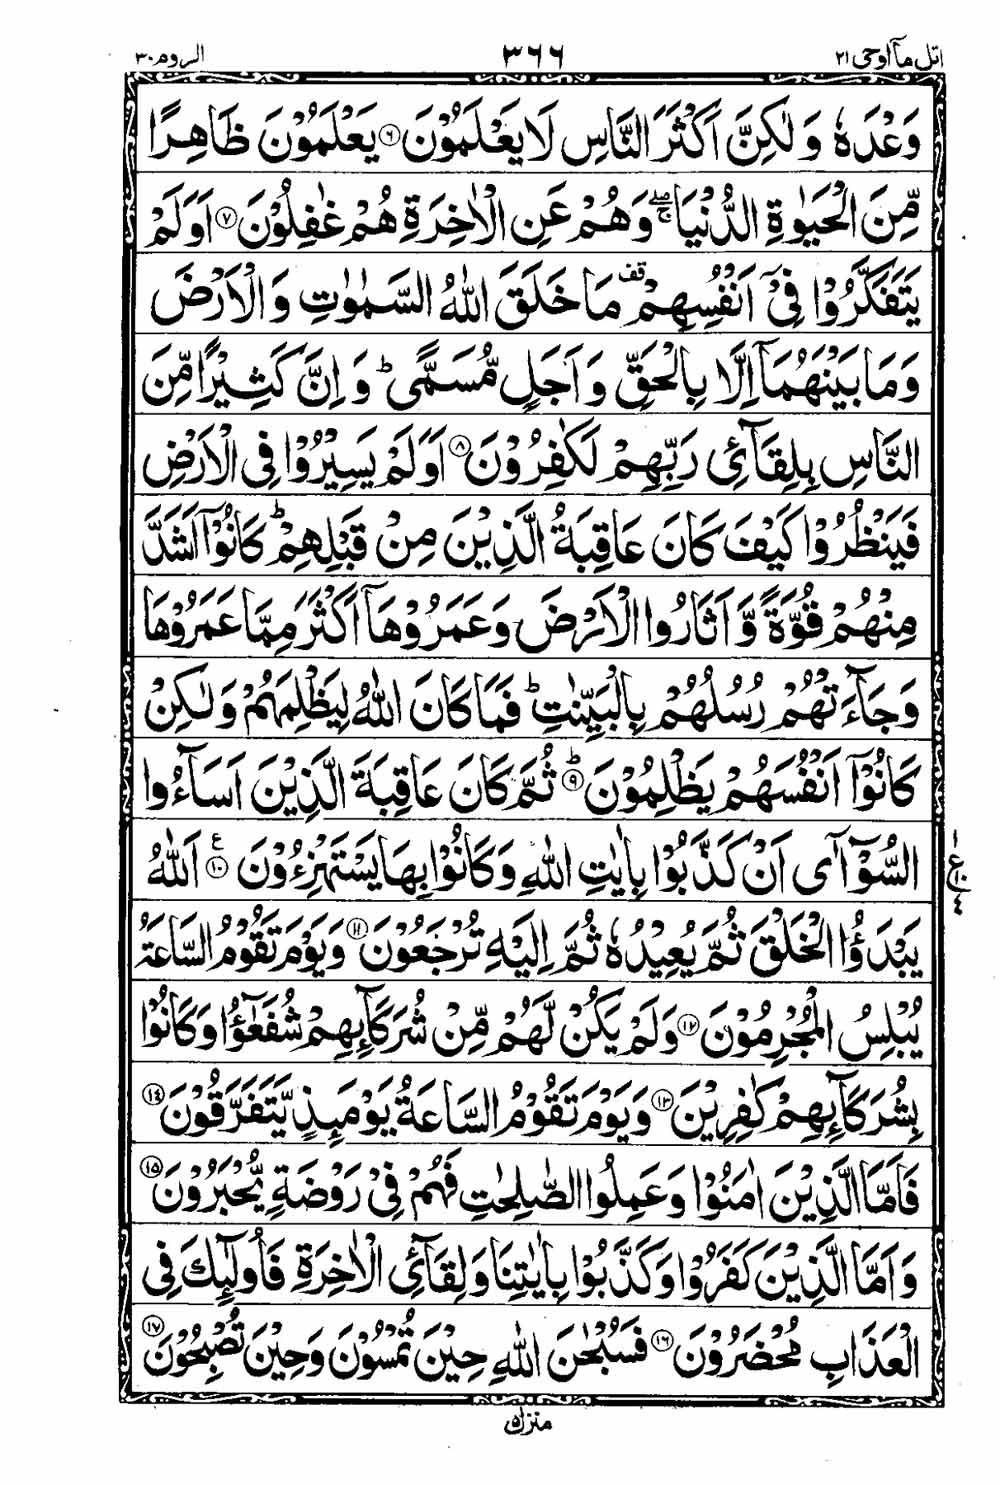 اتل مآ اوحی ٢١ ٣٦٦ الروم ٣٠
وَعْدَهٗ وَلٰكِنَّ اَكْثَرَ النَّاسِ لَا يَعْلَمُوْنَ ۝٦ يَعْلَمُوْنَ ظَاهِرًا
مِّنَ الْحَيٰوةِ الدُّنْيَا ۖۚ وَهُمْ عَنِ الْاٰخِرَةِ هُمْ غٰفِلُوْنَ ۝٧ اَوَلَمْ
يَتَفَكَّرُوْا فِيْٓ اَنْفُسِهِمْ قف مَا خَلَقَ اللّٰهُ السَّمٰوٰتِ وَالْاَرْضَ
وَمَا بَيْنَهُمَآ اِلَّا بِالْحَقِّ وَاَجَلٍ مُّسَمًّى ؕ وَاِنَّ كَثِيْرًا مِّنَ
النَّاسِ بِلِقَآئِ رَبِّهِمْ لَكٰفِرُوْنَ ۝٨ اَوَلَمْ يَسِيْرُوْا فِي الْاَرْضِ
فَيَنْظُرُوْا كَيْفَ كَانَ عَاقِبَةُ الَّذِيْنَ مِنْ قَبْلِهِمْ ؕ كَانُوْٓا اَشَدَّ
مِنْهُمْ قُوَّةً وَّاَثَارُوا الْاَرْضَ وَعَمَرُوْهَآ اَكْثَرَ مِمَّا عَمَرُوْهَا
وَجَآءَتْهُمْ رُسُلُهُمْ بِالْبَيِّنٰتِ ؕ فَمَا كَانَ اللّٰهُ لِيَظْلِمَهُمْ وَلٰكِنْ
كَانُوْٓا اَنْفُسَهُمْ يَظْلِمُوْنَ ؕ۝٩ ثُمَّ كَانَ عَاقِبَةَ الَّذِيْنَ اَسَآءُوا
السُّوْٓآٰى اَنْ كَذَّبُوْا بِاٰيٰتِ اللّٰهِ وَكَانُوْا بِهَا يَسْتَهْزِءُوْنَ ۝١٠ ع اَللّٰهُ
يَبْدَؤُا الْخَلْقَ ثُمَّ يُعِيْدُهٗ ثُمَّ اِلَيْهِ تُرْجَعُوْنَ ۝١١ وَيَوْمَ تَقُوْمُ السَّاعَةُ
يُبْلِسُ الْمُجْرِمُوْنَ ۝١٢ وَلَمْ يَكُنْ لَّهُمْ مِّنْ شُرَكَآئِهِمْ شُفَعٰٓؤُا وَكَانُوْا
بِشُرَكَآئِهِمْ كٰفِرِيْنَ ۝١٣ وَيَوْمَ تَقُوْمُ السَّاعَةُ يَوْمَئِذٍ يَّتَفَرَّقُوْنَ ۝١٤
فَاَمَّا الَّذِيْنَ اٰمَنُوْا وَعَمِلُوا الصّٰلِحٰتِ فَهُمْ فِيْ رَوْضَةٍ يُّحْبَرُوْنَ ۝١٥
وَاَمَّا الَّذِيْنَ كَفَرُوْا وَكَذَّبُوْا بِاٰيٰتِنَا وَلِقَآئِ الْاٰخِرَةِ فَاُولٰٓئِكَ فِي
الْعَذَابِ مُحْضَرُوْنَ ۝١٦ فَسُبْحٰنَ اللّٰهِ حِيْنَ تُمْسُوْنَ وَحِيْنَ تُصْبِحُوْنَ ۝١٧
منزل ٥